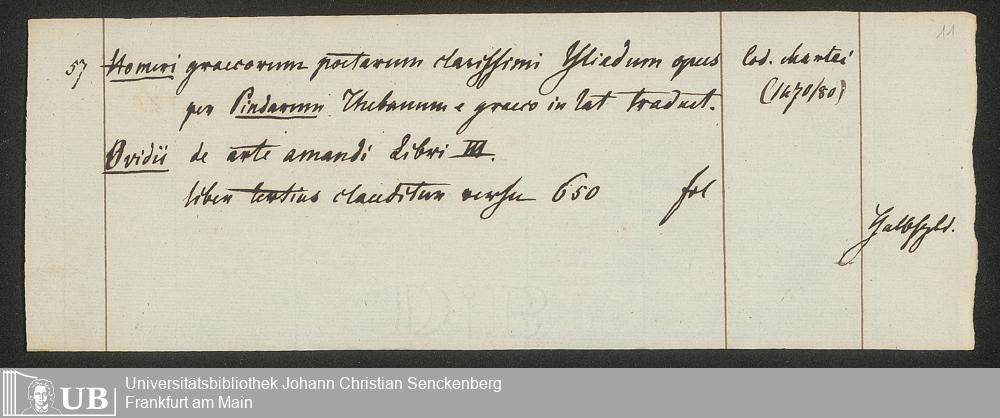 11
57 Homeri graecorum poetarum clarissimi Yliadum opus Cod. chartac
per Pindarum Thebanum e graeco in lat traduct. (1470/80)
Ovidii de arte amandi Libri III.
liber tertius clauditur versu 650 fol
Halbfzbd.
UB
Universitätsbibliothek Johann Christian Senckenberg
Frankfurt am Main